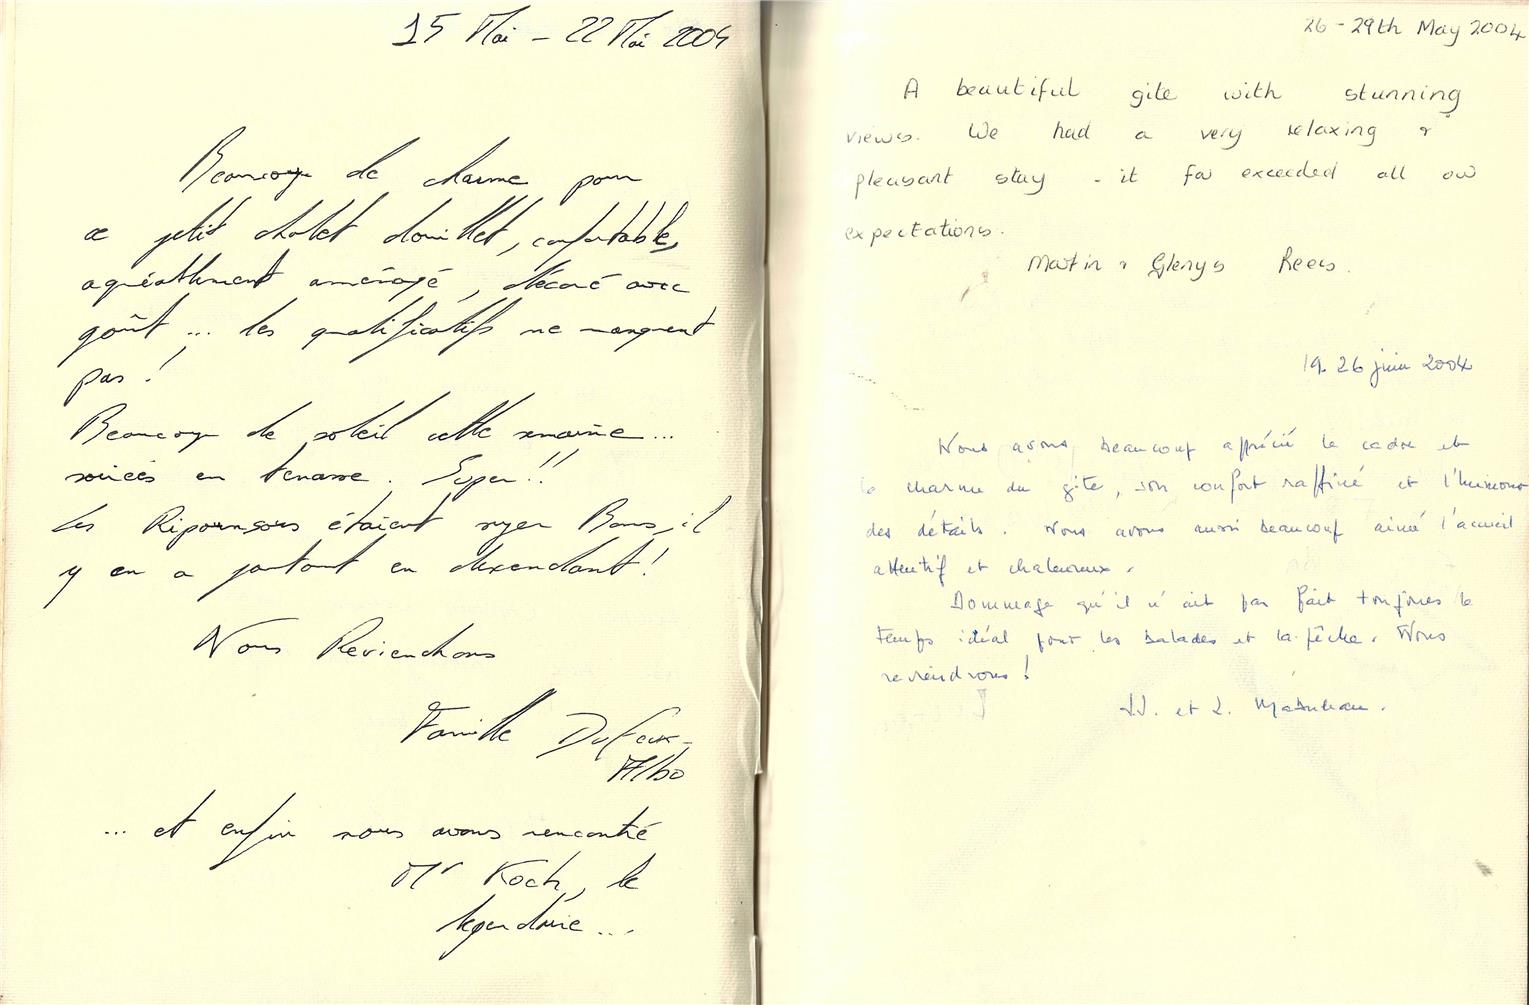 15 Mai - 22 Mai 2004
Beaucoup de charme pour
ce petit chalet douillet, confortable,
agréablement aménagé, décoré avec
goût ... les qualificatifs ne manquent
pas !
Beaucoup de soleil cette semaine ...
soirées en terrasse. Super !!
Les étaient super Bons, il
y en a partout en descendant !
Nous Reviendrons
Famille Dufeux-
Albo
... et enfin nous avons rencontré
Mr Koch, le
légendaire ...
26 - 29th May 2004
A beautiful gite with stunning
views. We had a very relaxing &
pleasant stay - it far exceeded all our
expectations.
Martin & Glenys Rees.
19. 26 juin 2004
Nous avons beaucoup apprécié le cadre et
le charme du gîte, son confort raffiné et
des détails. Nous avons aussi beaucoup aimé l'accueil
attentif et chaleureux.
Dommage qu'il n'ait pas fait toujours le
temps idéal pour les balades et la pêche. Nous
reviendrons !
J.J. et